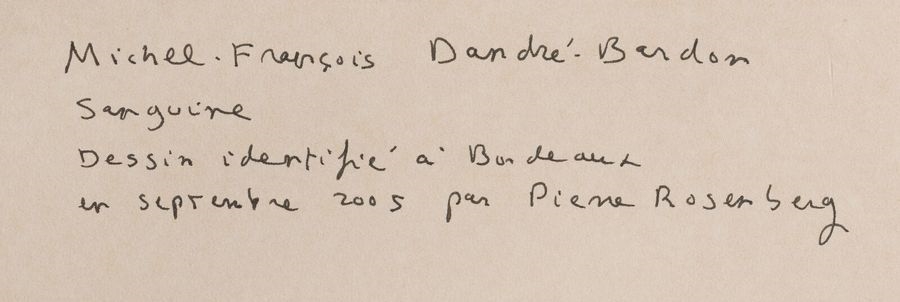 Michel-François Dandré-Bardon
Sanguine
Dessin identifié à Bordeaux
en septembre 2005 par Pierre Rosenberg